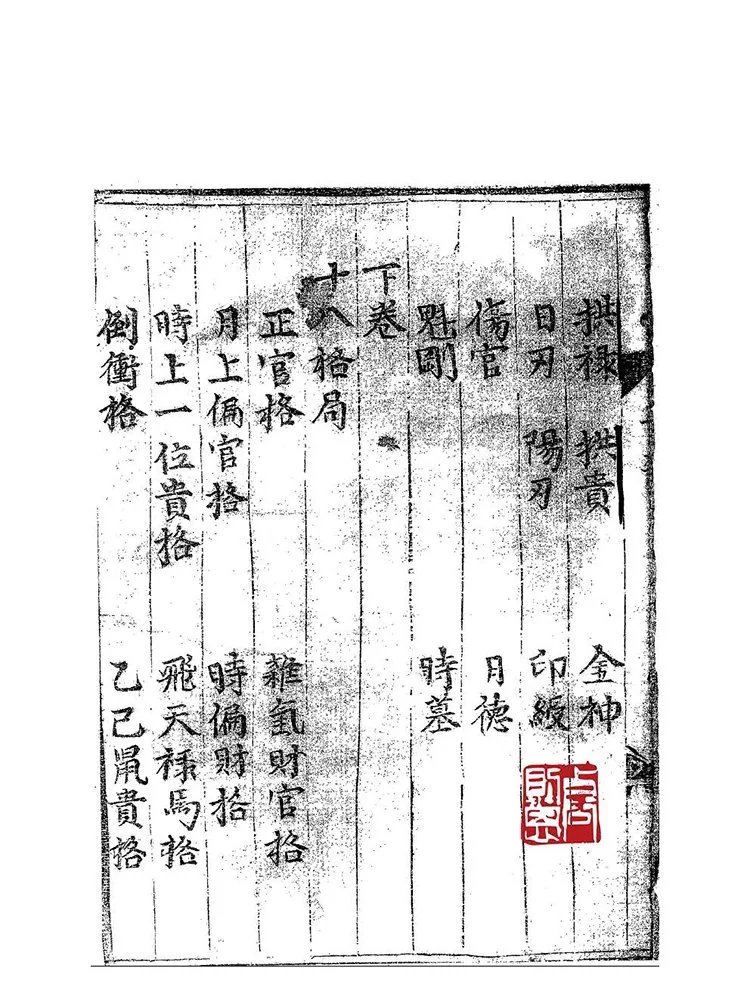 拱祿 拱貴 金神
日刃 陽刃 印綬
傷官 月德
魁剛 時墓
下卷
十八格局
正官格 雜氣財官格
月上偏官格 時偏財格
時上一位貴格 飛天祿馬格
倒衝格 乙己鼠貴格